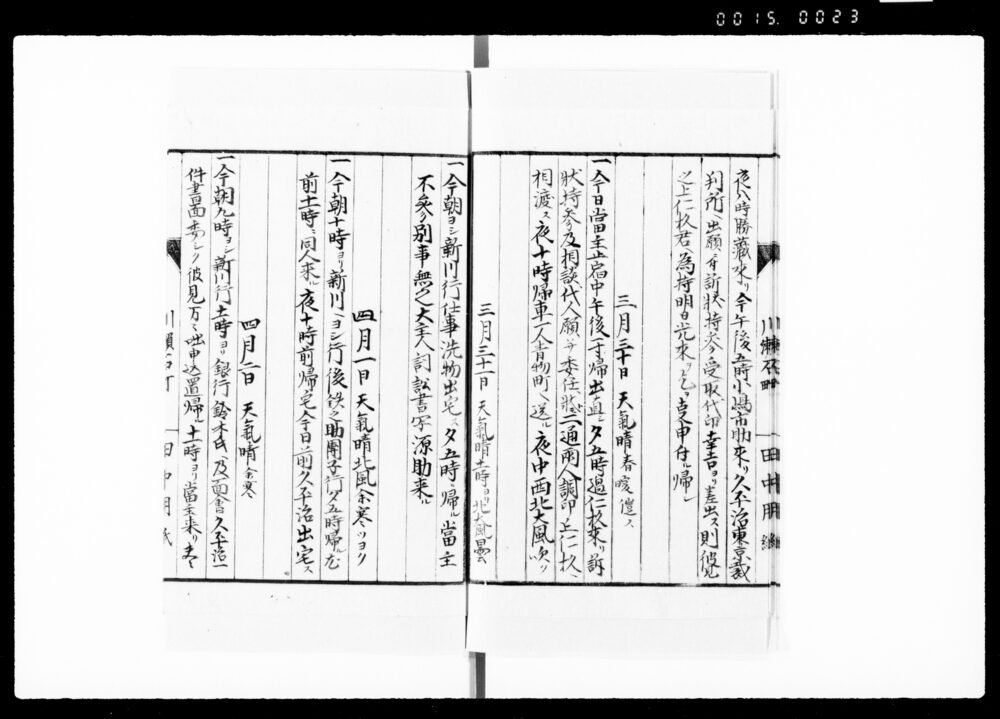 0015. 0023
夜八時勝藏来リ今午後五時小嶋市助来リ久平治東京裁
判所ヘ出願ニ付訴状持参受取代印幸吉ヨリ差出ス則彼見
之上仁杦君ヘ為持明日光来ヲ乞フ
申付ル帰ル
三月三十日 天氣晴春暖催ス
一今日當主正宿中午後一寸帰出直ニ夕五時過仁杦来リ訴
状持参及相談代人願ニ付委任状二通兩人調印ノ上仁杦ヘ
相渡ス夜十時帰車一人青物町ヘ送ル夜中西北大風吹ク
三月三十一日 天氣晴十時ヨリ北大風曇
一今朝ヨリ新川行仕事洗物出宅ス夕五時ニ帰ル當主
不参別事無之大主人詞訟書写源助来ル
四月一日 天氣晴北風余寒ツヨシ
一今朝十時ヨリ新川ヘ行後鉄之助團子行夕五時帰ル
前十時ニ同人来ル夜十時前帰宅今日前久平治出宅ス
四月二日 天氣晴余寒
一今朝九時ヨリ新川行十時ヨリ銀行鈴木氏ヘ及面會久平治一
件書面
彼見
申込置帰ル十一時ヨリ當主来リ
川瀬石町
田中